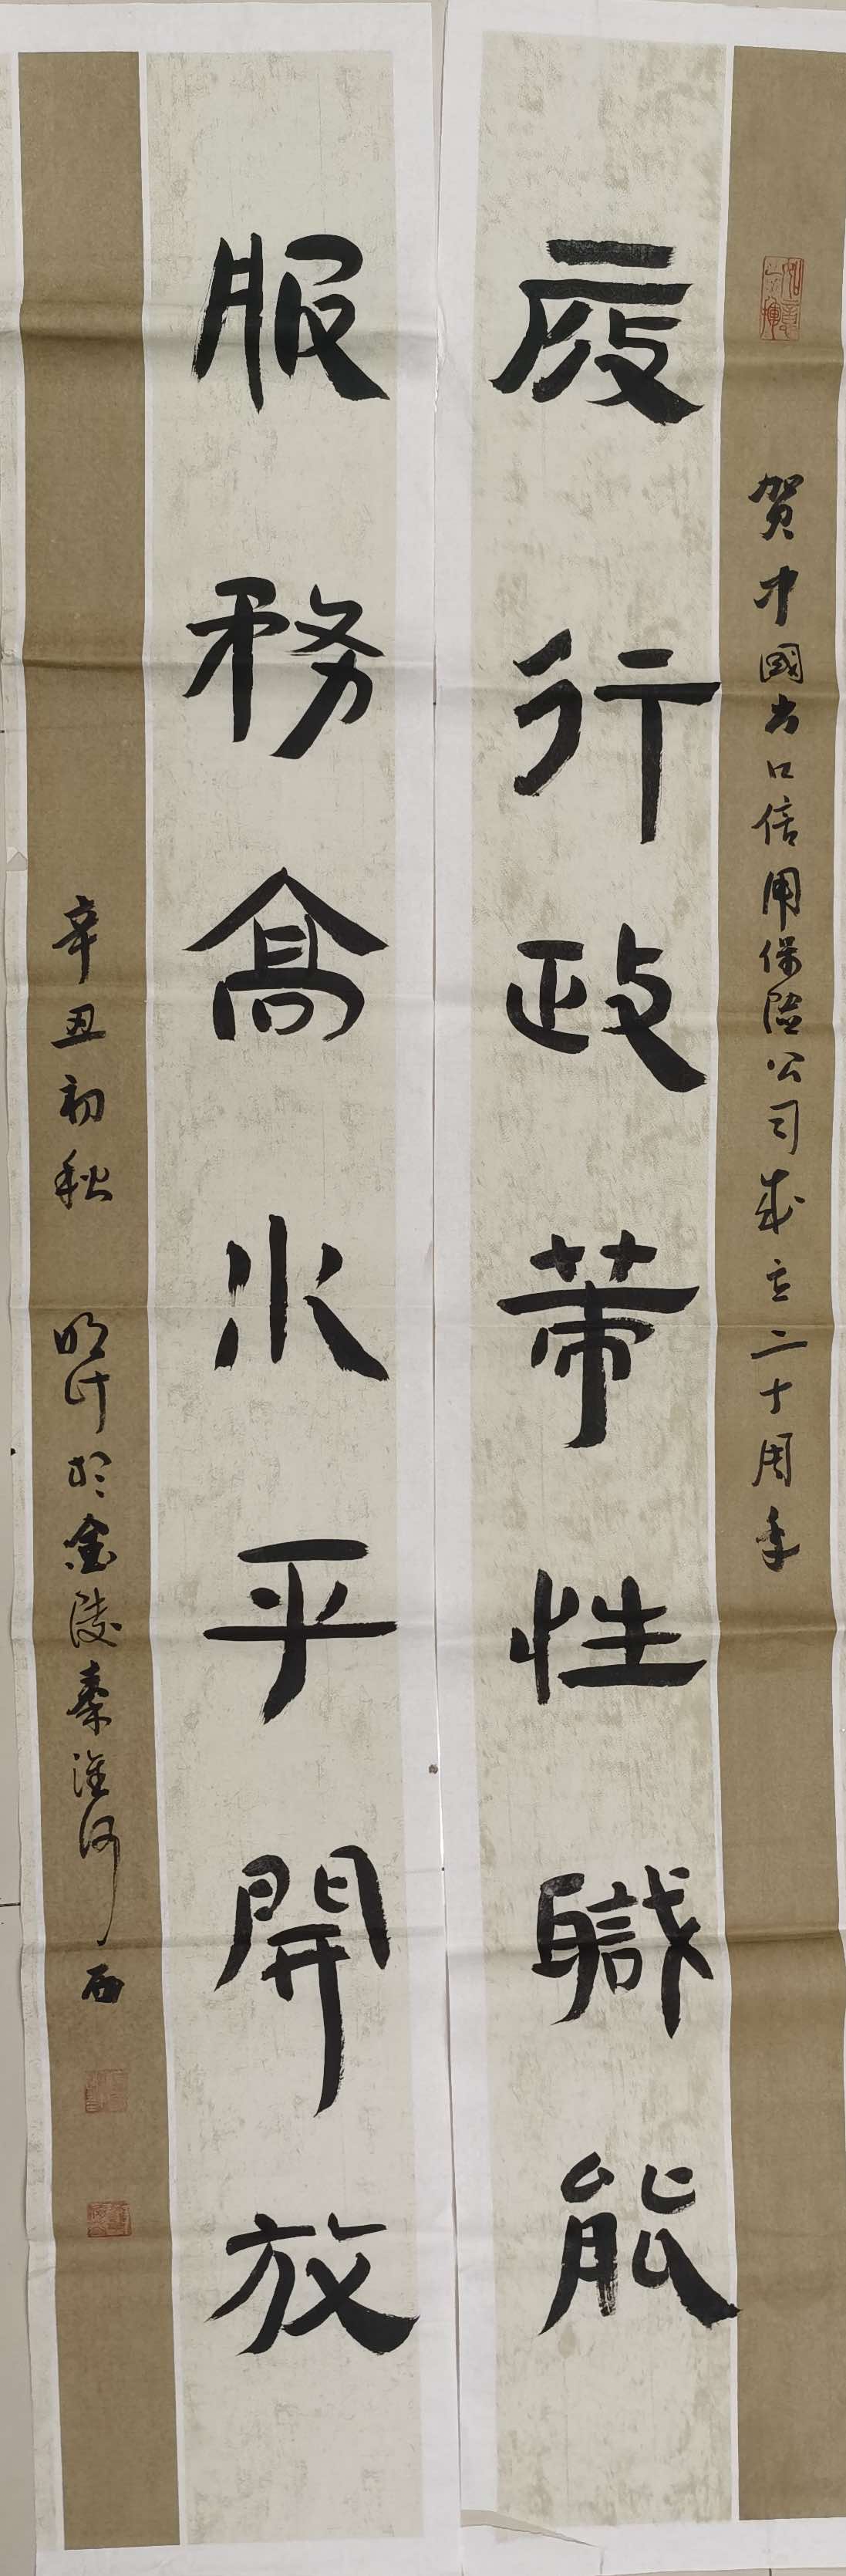 贺中國出口信用保险公司成立二十周年
履行政策性職能
服務高水平開放
辛丑初秋 明 於金陵秦淮河西